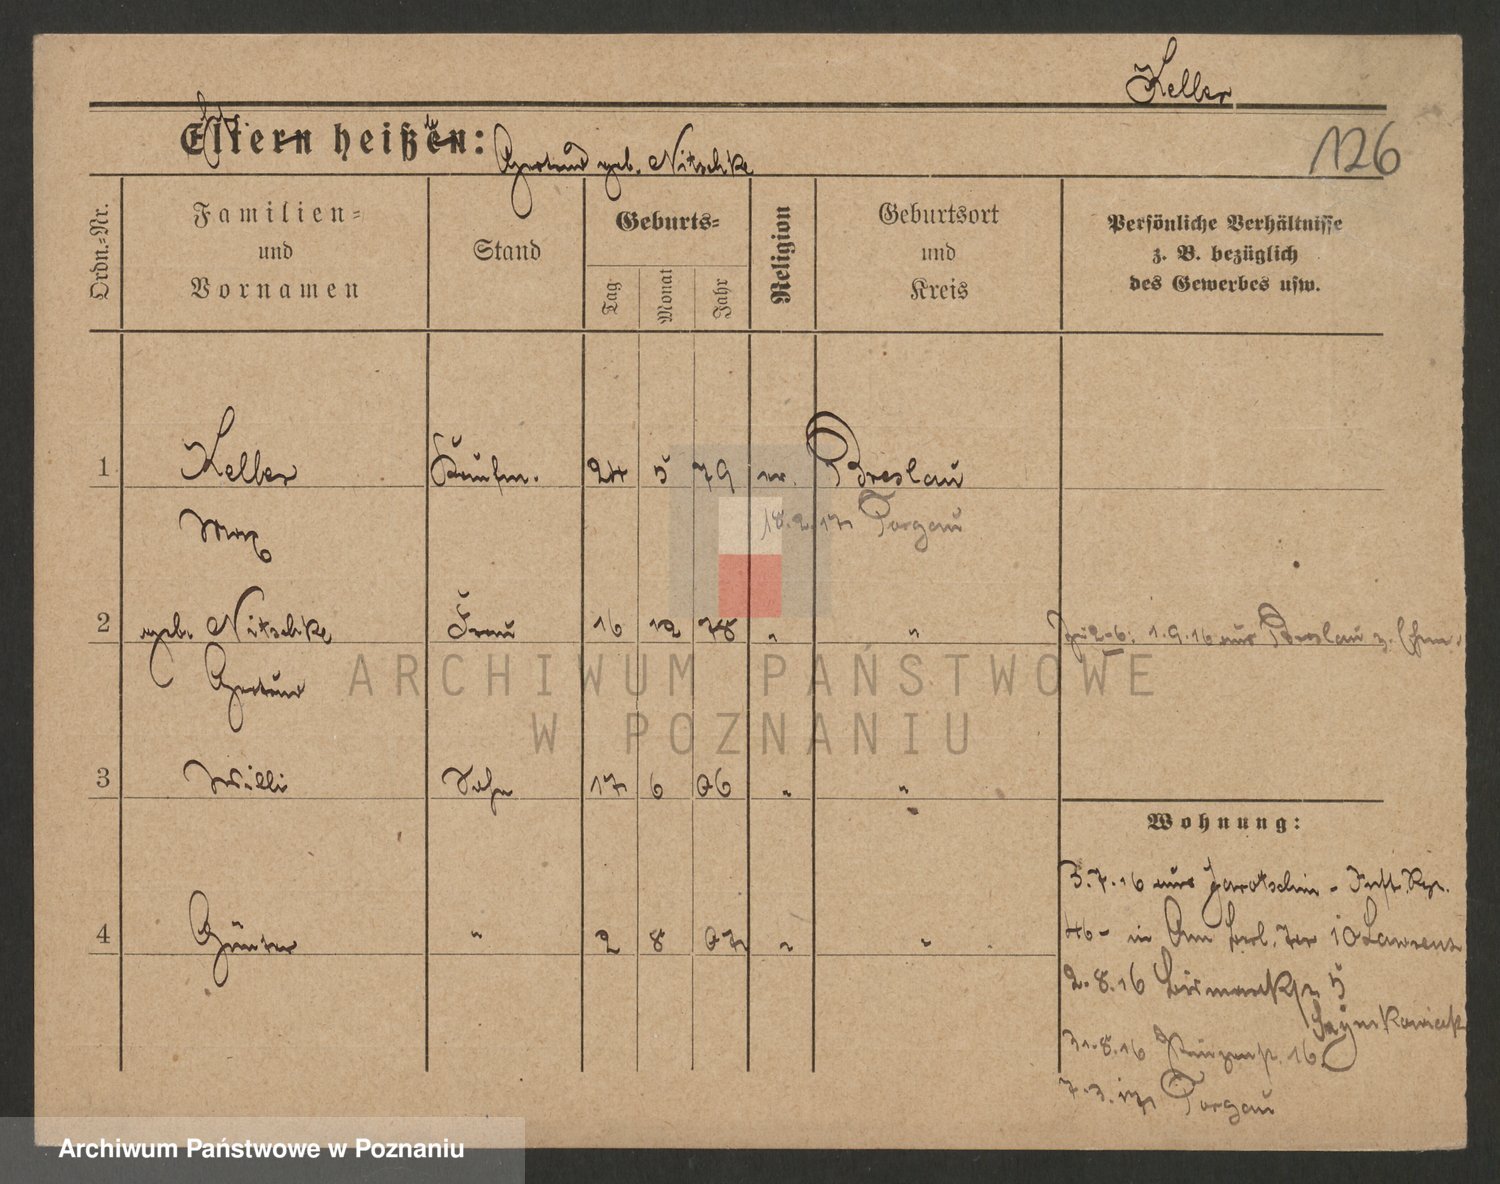 Keller
126
Eltern heißen:
Gertrud geb. Nitschke
Ordn.=Nr.
Familien=
und
Vornamen
Stand
Geburts=
Tag
Monat
Jahr
Religion
Geburtsort
und
Kreis
Persönliche Verhältnisse
z. B. bezüglich
des Gewerbes usw.
1 Keller Kaufm. 24 5 79 ev. Breslau
Max 18.2.17 Torgau
2 geb. Nitschke Frau 16 12 78 " " Zu 2-6. 1.9.16 aus Breslau z.
Gertrud
3 Willi Sohn 17 6 06 " "
Wohnung:
3.7.16 aus Jarotschin - Inft. Rgt.
4 Günter " 2 8 07 " "
46 - in Am Berl. Tor 10 Lawrenz
2.8.16 Bismarckstr. 5
Szymkowiak
31.8.16 16.
7.3.17 Torgau
ARCHIWUM PAŃSTWOWE
W POZNANIU
Archiwum Państwowe w Poznaniu